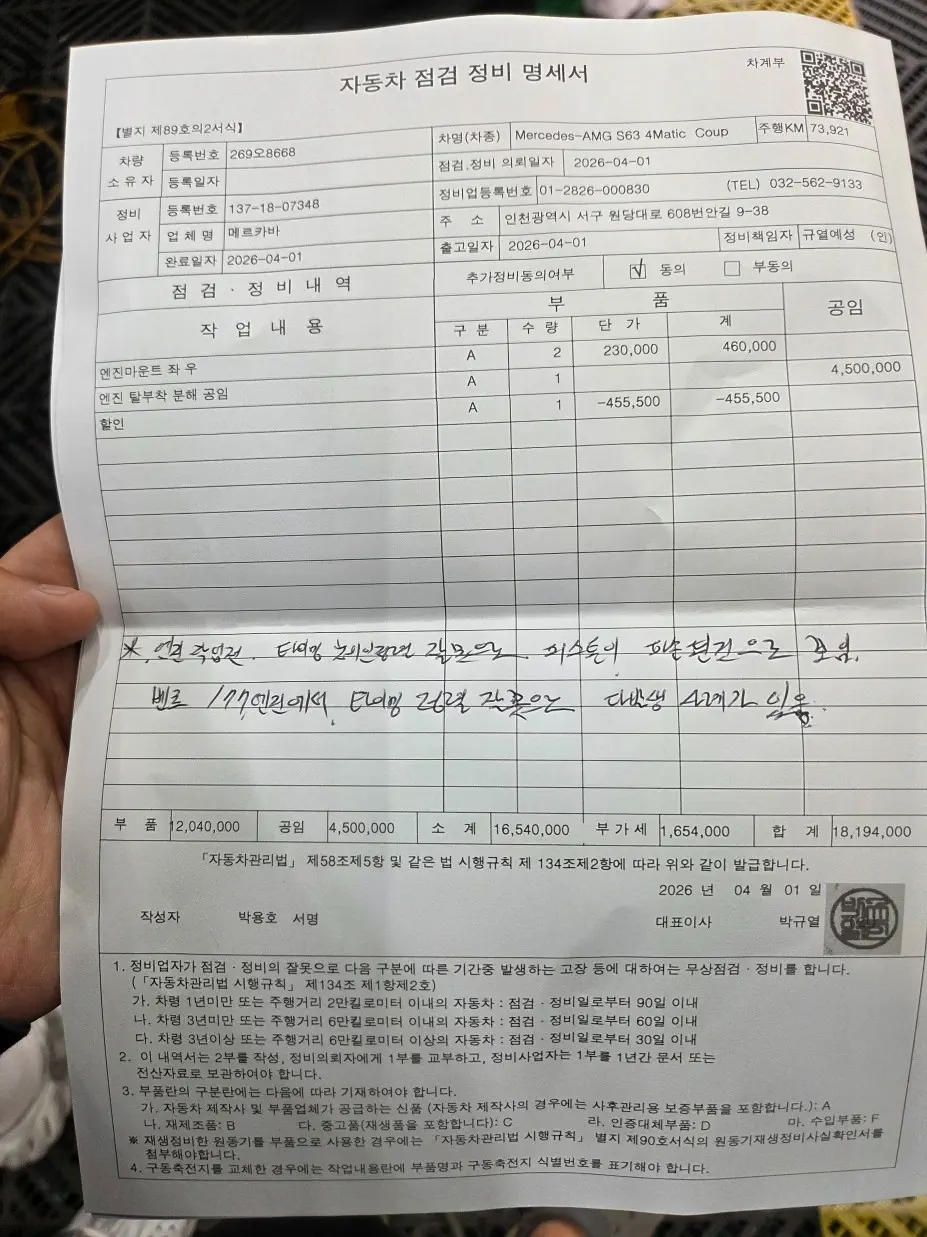 자동차 점검 정비 명세서
차계부
【별지 제89호의2서식】
차량 소유자
등록번호 269오8668
등록일자
차명(차종) Mercedes-AMG S63 4Matic Coup 주행KM 73,921
점검.정비 의뢰일자 2026-04-01
정비업등록번호 01-2826-000830 (TEL) 032-562-9133
정비 사업자
등록번호 137-18-07348
업체명 메르카바
완료일자 2026-04-01
주 소 인천광역시 서구 원당대로 608번안길 9-38
출고일자 2026-04-01 정비책임자 규열예성 (인)
점검·정비내역
추가정비동의여부 √ 동의 부동의
작업내용 부품 공임
구분 수량 단가 계
엔진마운트 좌 우 A 2 230,000 460,000
엔진 탈부착 분해 공임 A 1 4,500,000
할인 A 1 -455,500 -455,500
* 엔진 작업건. 타이밍 피스톤이 파손된건으로 보임.
벤츠 177엔진에서 타이밍 다발생 사례가 있음.
부품 12,040,000 공임 4,500,000 소계 16,540,000 부가세 1,654,000 합계 18,194,000
「자동차관리법」 제58조제5항 및 같은 법 시행규칙 제 134조제2항에 따라 위와 같이 발급합니다.
2026 년 04 월 01 일
작성자 박용호 서명 대표이사 박규열
1. 정비업자가 점검·정비의 잘못으로 다음 구분에 따른 기간중 발생하는 고장 등에 대하여는 무상점검·정비를 합니다.
(「자동차관리법 시행규칙」 제134조 제1항제2호)
가. 차령 1년미만 또는 주행거리 2만킬로미터 이내의 자동차 : 점검·정비일로부터 90일 이내
나. 차령 3년미만 또는 주행거리 6만킬로미터 이내의 자동차 : 점검·정비일로부터 60일 이내
다. 차령 3년이상 또는 주행거리 6만킬로미터 이상의 자동차 : 점검·정비일로부터 30일 이내
2. 이 내역서는 2부를 작성, 정비의뢰자에게 1부를 교부하고, 정비사업자는 1부를 1년간 문서 또는
전산자료로 보관하여야 합니다.
3. 부품란의 구분란에는 다음에 따라 기재하여야 합니다.
가. 자동차 제작사 및 부품업체가 공급하는 신품 (자동차 제작사의 경우에는 사후관리용 보증부품을 포함합니다.): A
나. 재제조품: B 다. 중고품(재생품을 포함합니다): C 라. 인증대체부품: D 마. 수입부품: F
※ 재생정비한 원동기를 부품으로 사용한 경우에는 「자동차관리법 시행규칙」 별지 제90호서식의 원동기재생정비사실확인서를
첨부해야합니다.
4. 구동축전지를 교체한 경우에는 작업내용란에 부품명과 구동축전지 식별번호를 표기해야 합니다.